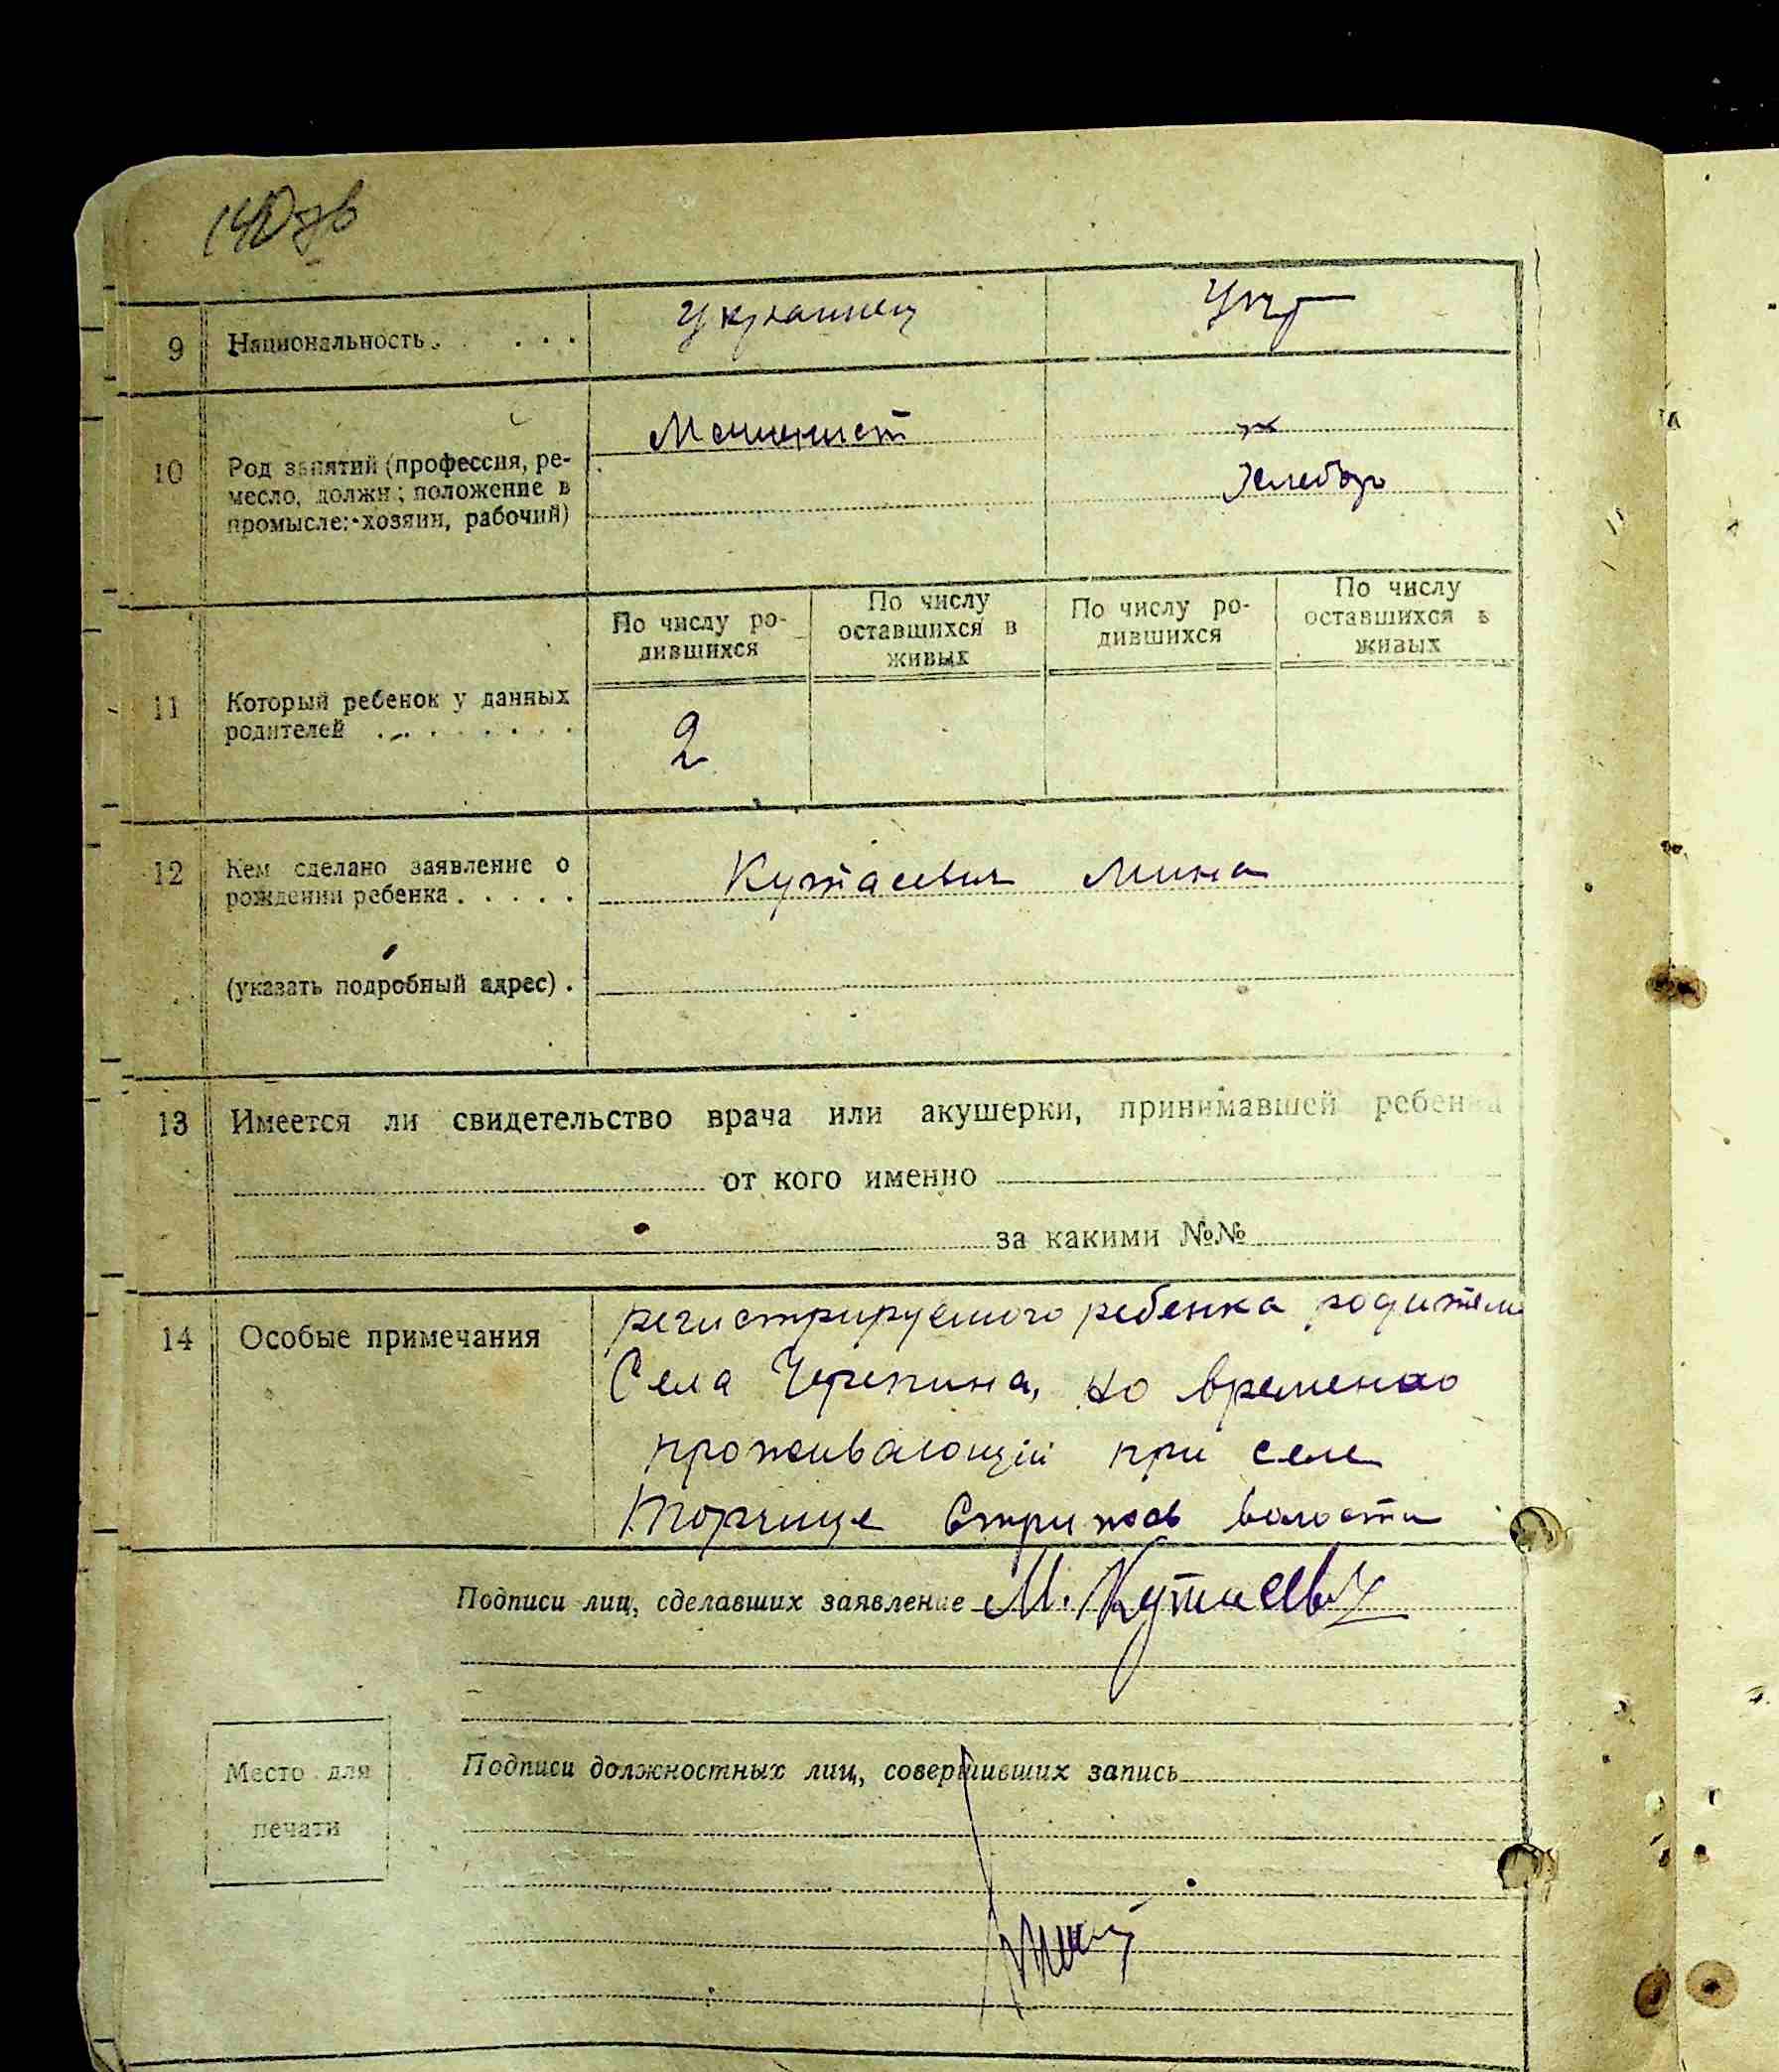 140 зв
9 Национальность . . . . Украинец Укр
10 Род занятий (профессия, ре-
месло, должн.; положение в
промысле: хозяин, рабочий)
Машинист
Хлебор
11 Который ребенок у данных
родителей . . . . . . . .
По числу ро-
дившихся
По числу
оставшихся в
живых
По числу ро-
дившихся
По числу
оставшихся в
живых
2
12 Кем сделано заявление о
рождении ребенка . . . . .
Кутасевич Мина
(указать подробный адрес) .
13 Имеется ли свидетельство врача или акушерки, принимавшей ребенка
от кого именно
за какими №№
14 Особые примечания
регистрируемого ребенка родители
Села Черепина, но временно
проживающій при селе
Торчице Стрижав волости
Подписи лиц, сделавших заявление М. Кутасевич
Подписи должностных лиц, совершивших запись
Место для
печати